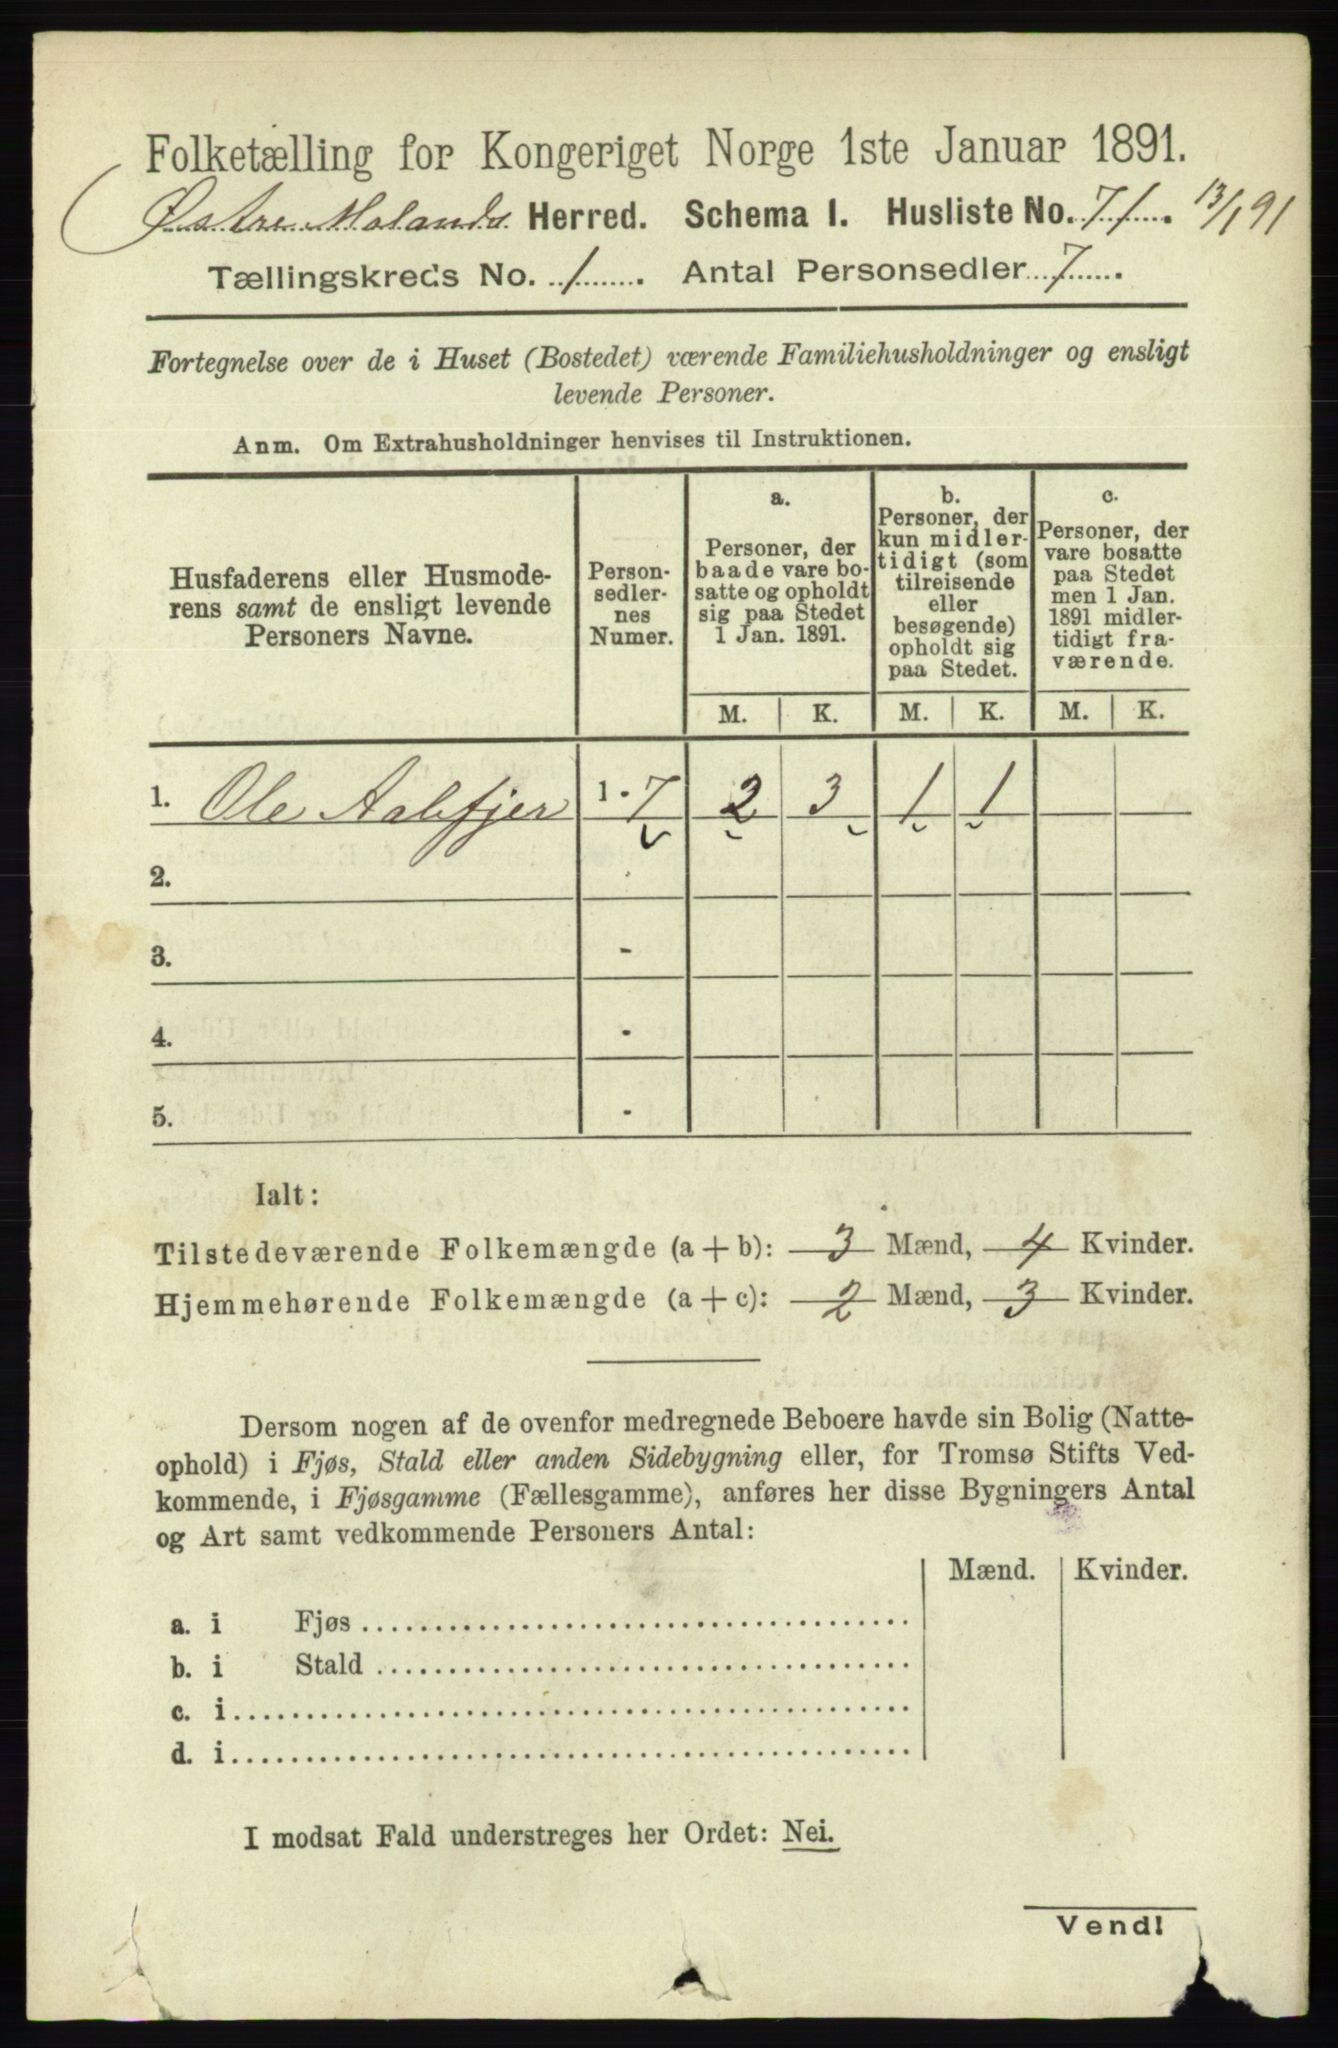 Folketælling for Kongeriget Norge 1ste Januar 1891.
Østre Molands Herred. Schema I. Husliste No. 71. 13/1 91
Tællingskreds No. 1. Antal Personsedler 7.
Fortegnelse over de i Huset (Bostedet) værende Familiehusholdninger og ensligt
levende Personer.
Anm. Om Extrahusholdninger henvises til Instruktionen.
Husfaderens eller Husmode-
rens samt de ensligt levende
Personers Navne.
Person-
sedler-
nes
Numer.
a.
Personer, der
baade vare bo-
satte og opholdt
sig paa Stedet
1 Jan. 1891.
b.
Personer, der
kun midler-
tidigt (som
tilreisende
eller
besøgende)
opholdt sig
paa Stedet.
c.
Personer, der
vare bosatte
paa Stedet
men 1 Jan.
1891 midler-
tidigt fra-
værende.
M. K. M. K. M. K.
1. Ole 1 - 7 2 3 1 1
2.
3. -
4. -
5. -
Ialt:
Tilstedeværende Folkemængde (a + b): 3 Mænd, 4 Kvinder.
Hjemmehørende Folkemængde (a + c): 2 Mænd, 3 Kvinder.
Dersom nogen af de ovenfor medregnede Beboere havde sin Bolig (Natte-
ophold) i Fjøs, Stald eller anden Sidebygning eller, for Tromsø Stifts Ved-
kommende, i Fjøsgamme (Fællesgamme), anføres her disse Bygningers Antal
og Art samt vedkommende Personers Antal:
Mænd. Kvinder.
a. i Fjøs
b. i Stald
c. i
d. i
I modsat Fald understreges her Ordet: Nei.
Vend!